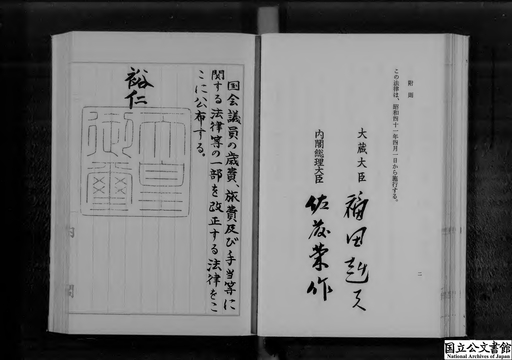 附則
この法律は、昭和四十一年四月一日から施行する。
大蔵大臣 福田赳夫
内閣総理大臣 佐藤榮作
二
国会議員の歳費、旅費及び手当等に
関する法律等の一部を改正する法律をこ
こに公布する。
裕仁
天皇
御璽
国立公文書館
National Archives of Japan